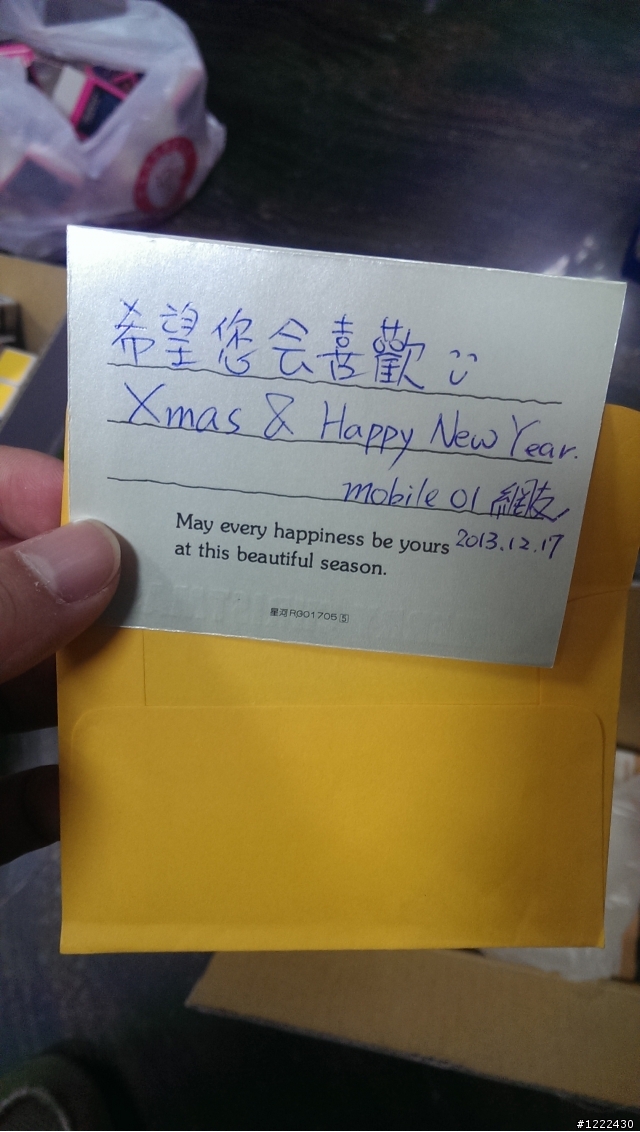 希望您会喜歡
Xmas & Happy New Year.
mobile 01 網友
2013.12.17
May every happiness be yours
at this beautiful season.
星河RG01705[5]
#1222430